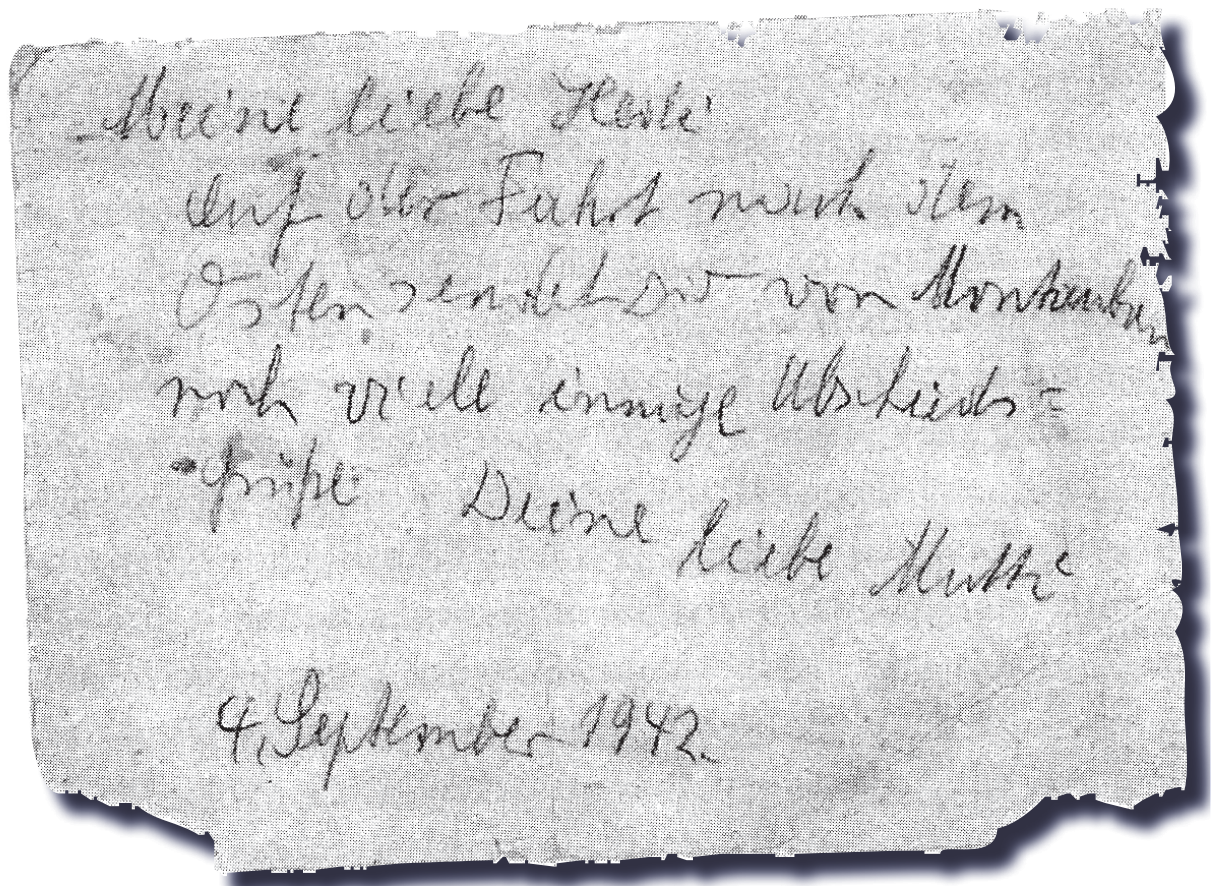 Meine liebe Hedi
Auf der Fahrt nach dem
Osten sendet Dir von Montauban
noch viele innige Abschieds=
grüße Deine liebe Mutti
4. September 1942.